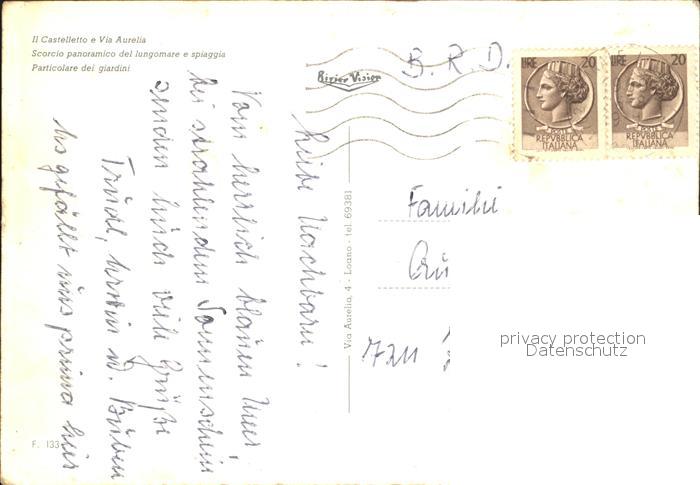 Il Castelletto e Via Aurelia
Scorcio panoramico del lungomare e spiaggia
Particolare dei giardini
Rivier Vision
B. R. D.
LIRE 20
POSTE
REPVBBLICA
ITALIANA
LIRE 20
POSTE
REPVBBLICA
ITALIANA
Liebe Nachbarn!
Vom herrlich blauen Meer,
bei strahlendem Sonnenschein
senden Euch viele Grüße
Trudl, Erwin u. Buben
Es gefällt uns prima hier
Via Aurelia, 4 - Loano - tel. 69381
Familie
7211
F. 133
privacy protection
Datenschutz